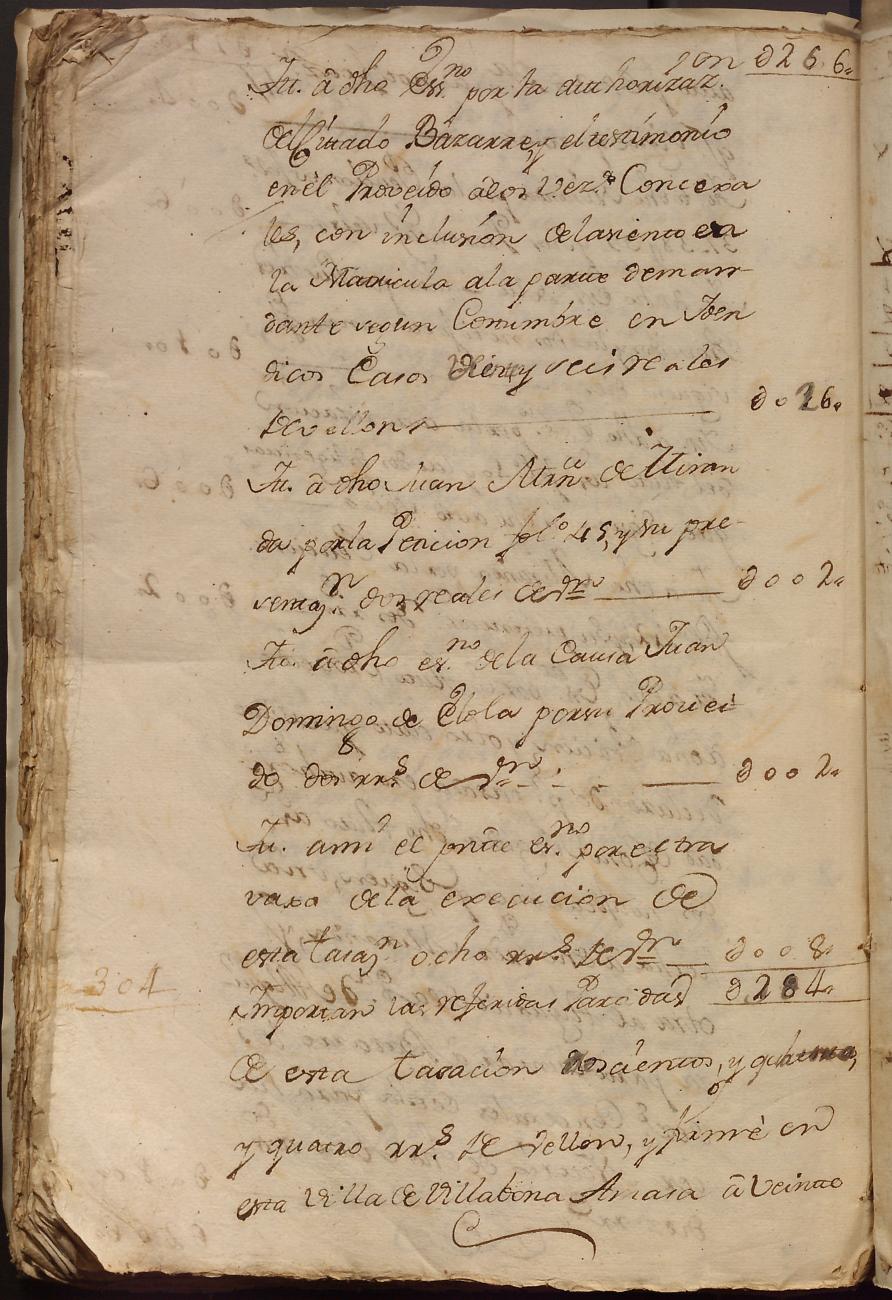 son ∂266.
It. â dho Ess.no por la authorizaz.
del Citado Bazarre, y el testimonio
en èl Proveido álos Vez.s Concexa
les, con inclusión del asiento en
la Matricula ala parte deman-
dante segun Costumbre en Iden
dicos Casos y seis reales
de vellon ∂026.
It. â dho Juan Mrñz de Miran
da por la Peticion fol.o 45, y su pre-
sentaz.n dos reales de vn ∂002.
It. â dho es.no de la Causa Juan
Domingo de Elola por su Provei-
do dos rr.s de vn ∂002.
It. ami el pnte es.no por el tra
vaxo dela execucion de
esta tasaz.n ocho rr.s de vn ∂008.
304
Importan las referidas Partidas ∂284.
de esta tasacion doscientos, y ochenta,
y quatro rr.s de vellon, y firmè en
esta Villa de Villabona Amasa â Veinte